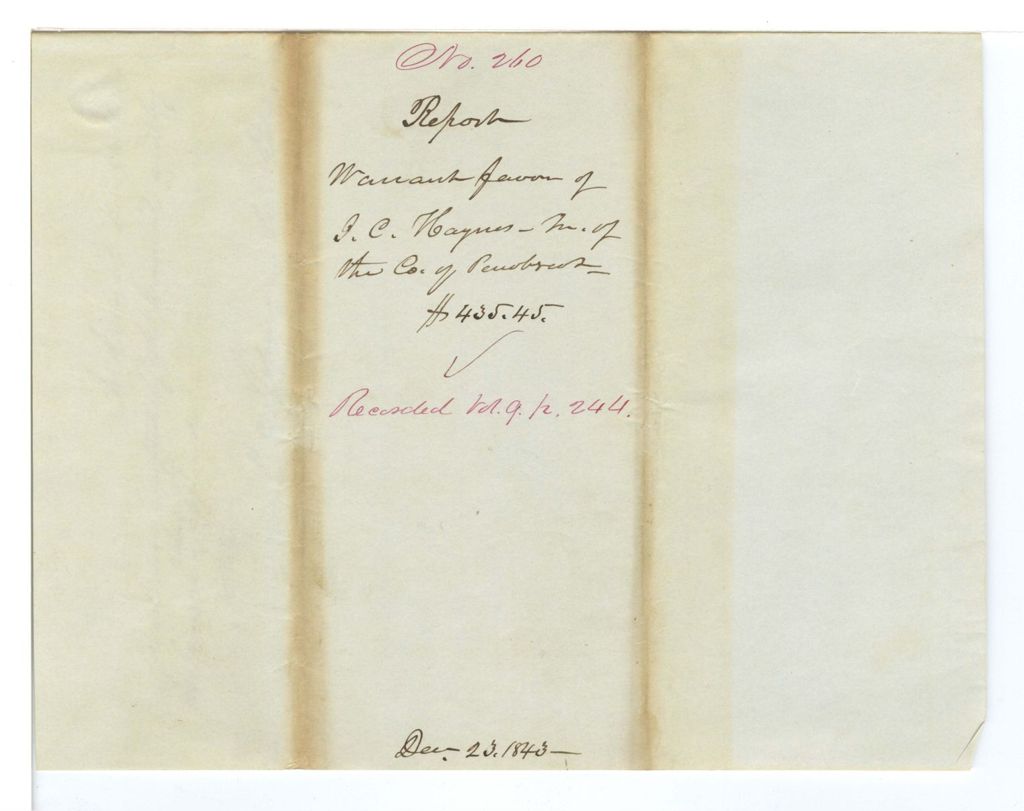 No. 260
Report
Warrant favor of
J. C. Haynes - Tr. of
the Co. of Penobscot -
$435.45.
Recorded Vol. 9. p. 244.
Dec. 23. 1843 -